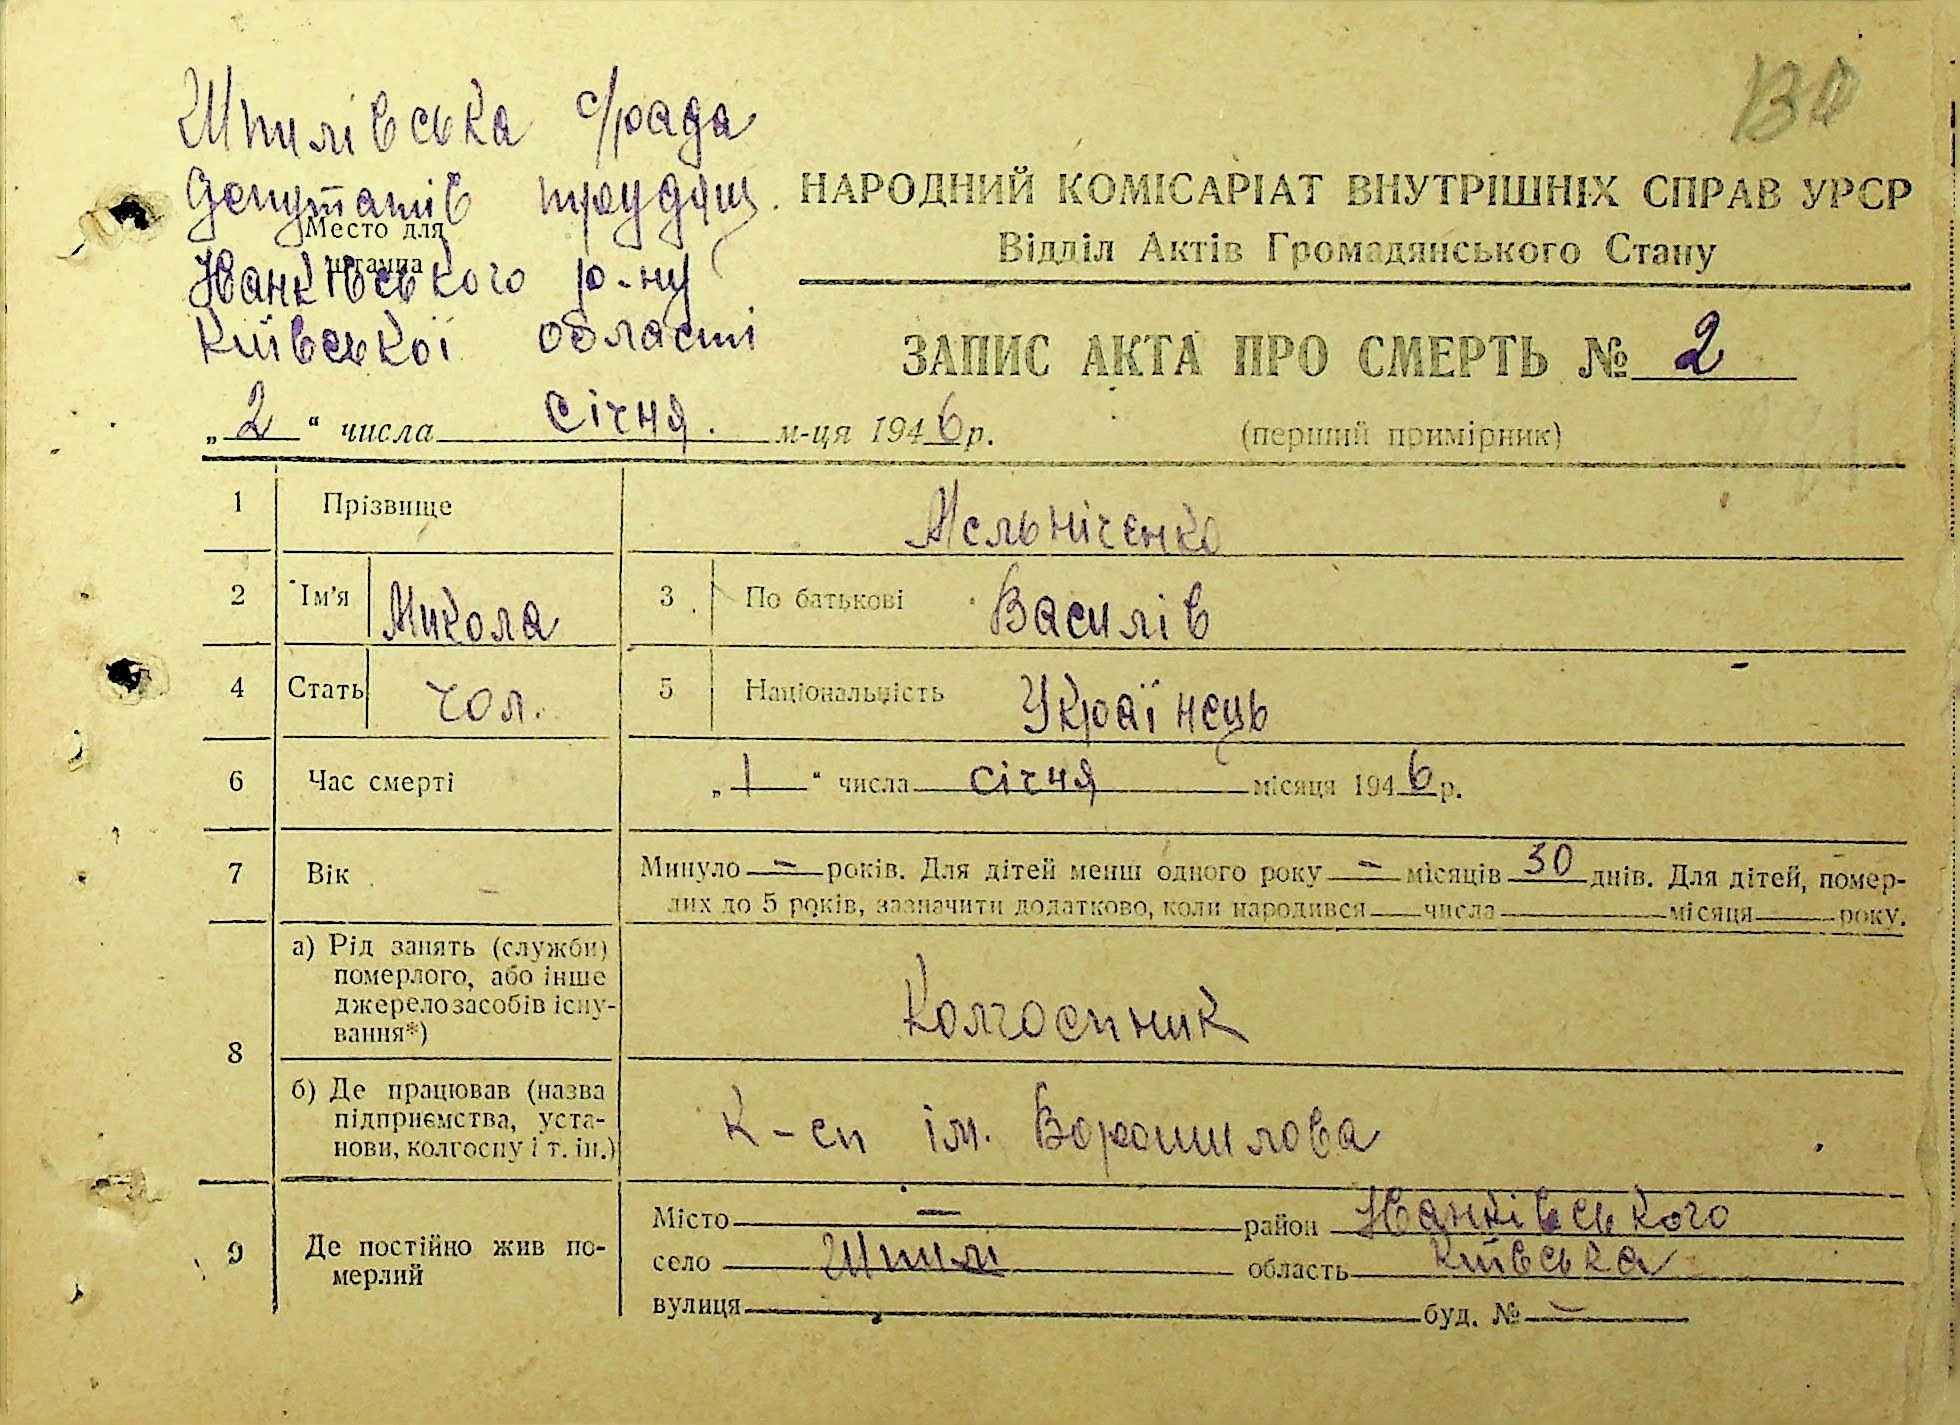 Шпилівська с/рада
депутатів трудящ.
Место для
штампа
Іванківського р-ну
Київської області
130
НАРОДНИЙ КОМІСАРІАТ ВНУТРІШНІХ СПРАВ УРСР
Відділ Актів Громадянського Стану
ЗАПИС АКТА ПРО СМЕРТЬ № 2
„2“ числа січня. м-ця 1946 р.
(перший примірник)
1 Прізвище Мельніченко
2 Ім'я Микола 3 По батькові Василів
4 Стать чол. 5 Національність Українець
6 Час смерті „1“ числа січня місяця 1946 р.
7 Вік – Минуло – років. Для дітей менш одного року – місяців 30 днів. Для дітей, помер-
лих до 5 років, зазначити додатково, коли народився числа місяця року.
8
а) Рід занять (служби)
померлого, або інше
джерело засобів існу-
вання*)
Колгоспник
б) Де працював (назва
підприємства, уста-
нови, колгоспу і т. ін.)
К-сп ім. Ворошилова
9 Де постійно жив по-
мерлий
Місто – район Іванківського
село Шпилі область Київська
вулиця буд. № –